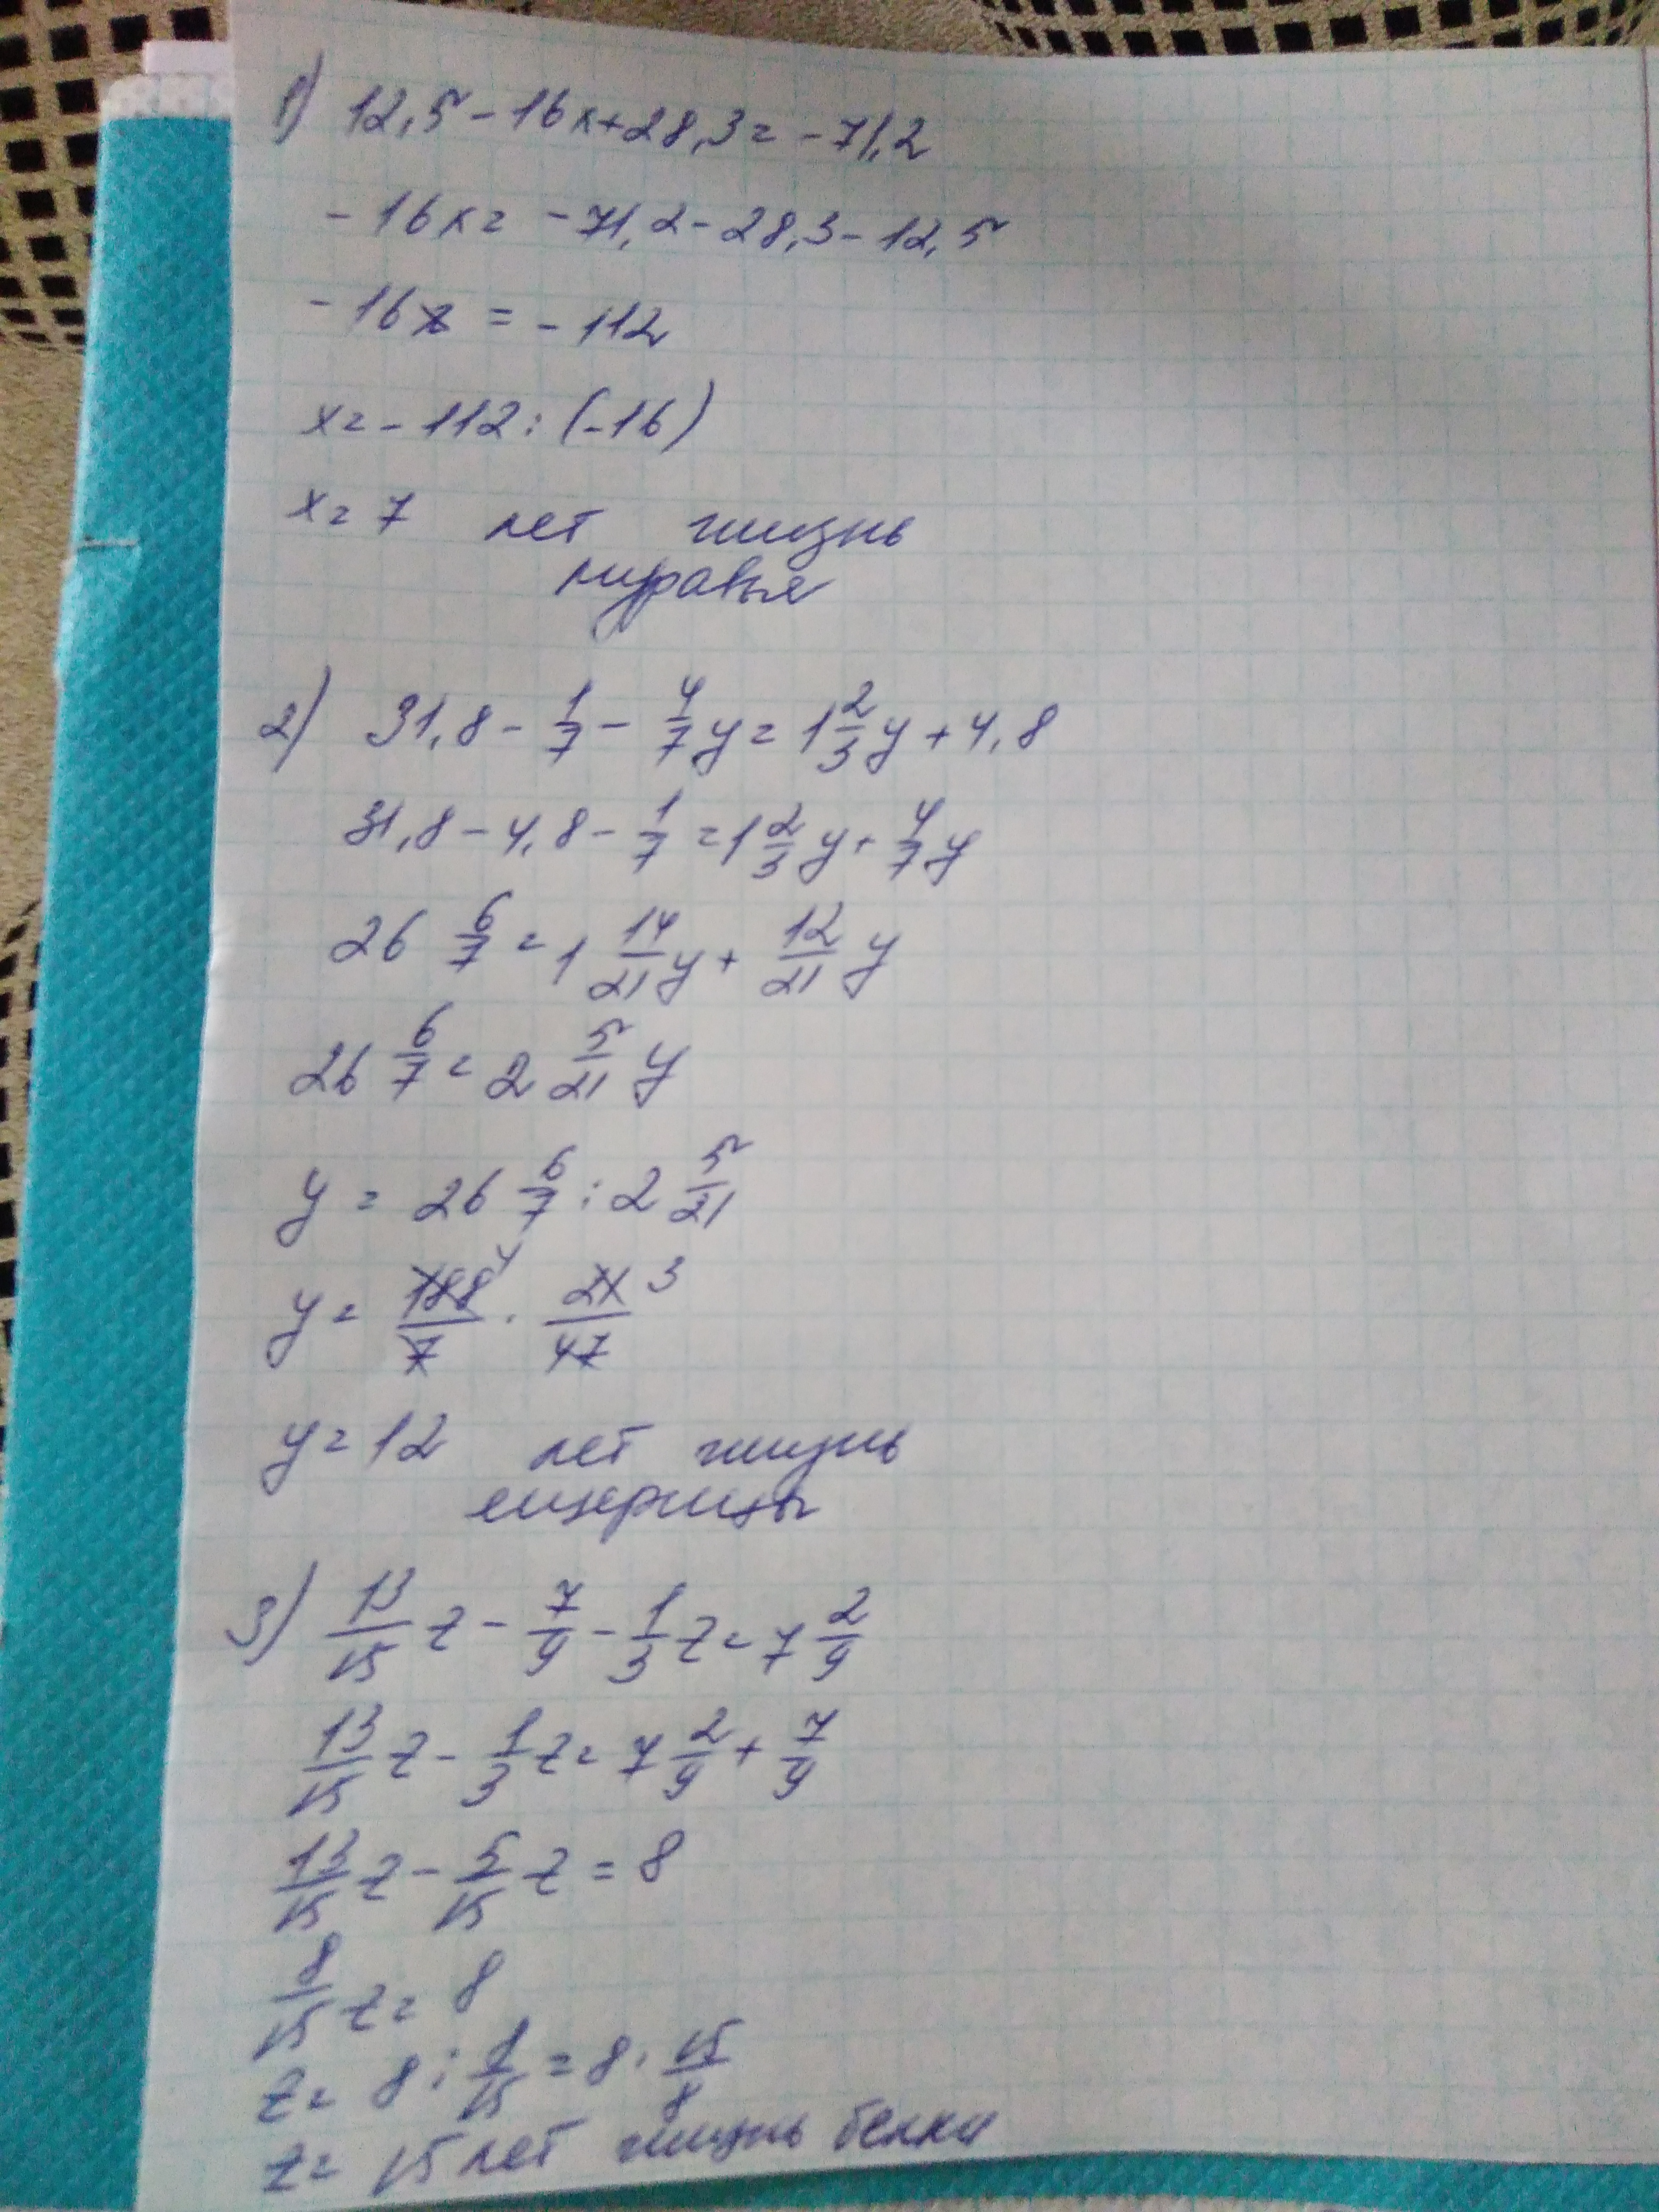 1) 12,5 - 16x + 28,3 = - 71,2
- 16x = - 71,2 - 28,3 - 12,5
- 16x = - 112
x = - 112 : (-16)
x = 7 лет жизнь
муравья
2) 31,8 - 1/7 - 4/7 y = 1 2/3 y + 4,8
31,8 - 4,8 - 1/7 = 1 2/3 y + 4/7 y
26 6/7 = 1 14/21 y + 12/21 y
26 6/7 = 2 5/21 y
y = 26 6/7 : 2 5/21
y = 188 4/7 · 21 3/47
y = 12 лет жизнь
ящерицы
3) 13/15 z - 7/9 - 1/3 z = 7 2/9
13/15 z - 1/3 z = 7 2/9 + 7/9
13/15 z - 5/15 z = 8
8/15 z = 8
z = 8 : 8/15 = 8 · 15/8
z = 15 лет жизнь белки